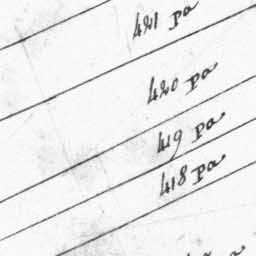 421 pa
420 pa
419 pa
418 pa